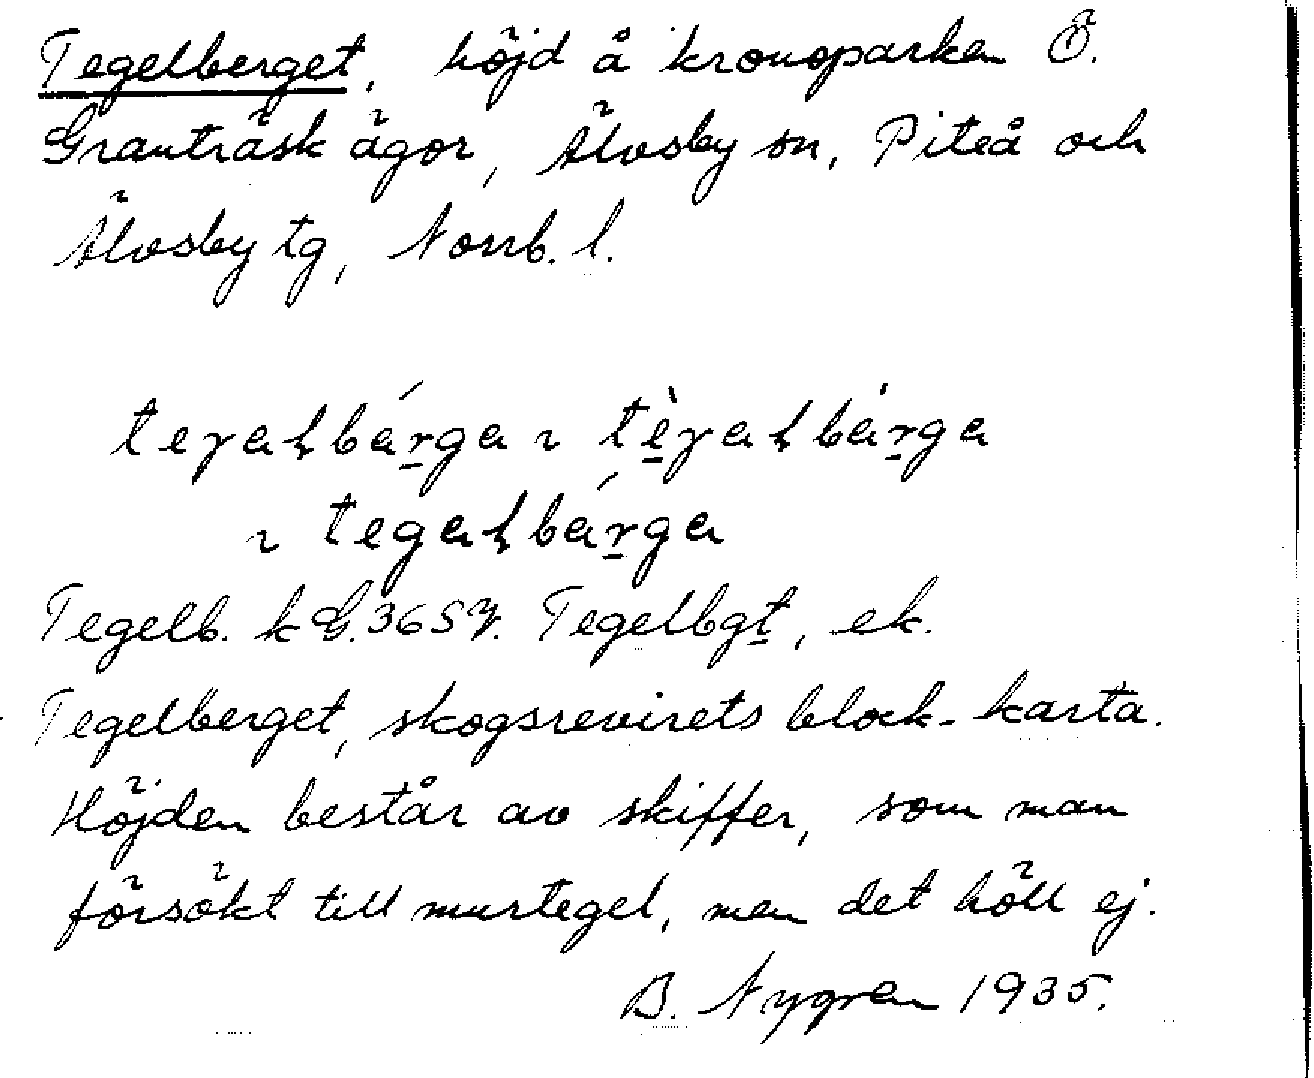 Tegelberget, höjd å kronoparken Ö.
Granträsk ägor, Älvsby sn, Piteå och
Älvsby tg, Norrb. l.
teγaɫbárga ~ tèγaɫbàrga
~ tegaɫbárga
Tegelb. k G. 365 Tegelbgt, ek.
Tegelberget, skogsrevirets block-karta.
Höjden består av skiffer, som man
försökt till murtegel, men det höll ej.
B. Nygren 1935.